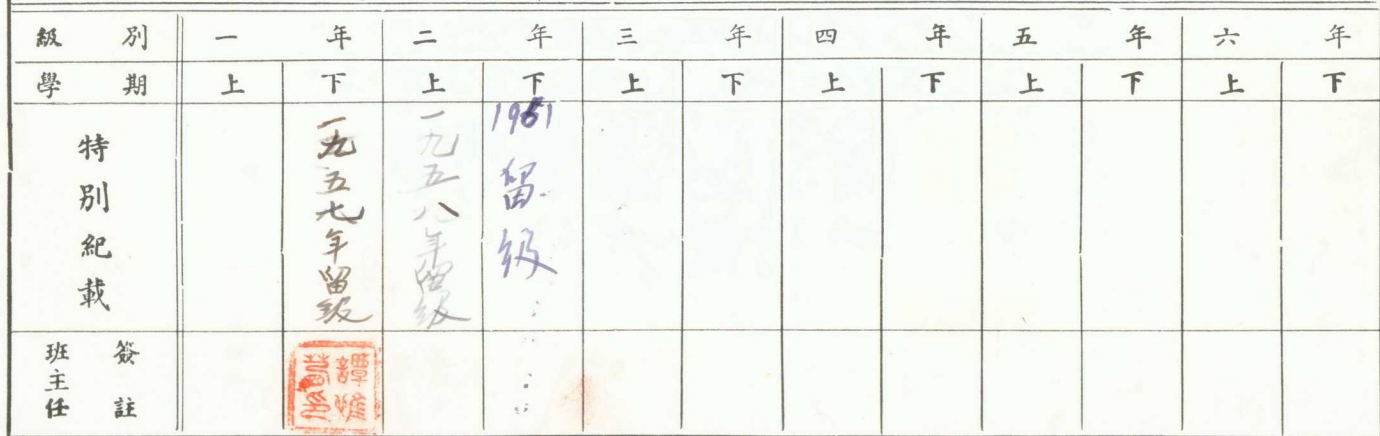 級別 一年 二年 三年 四年 五年 六年
學期 上 下 上 下 上 下 上 下 上 下 上 下
特別紀載 一九五七年留級 一九五八年留級 1961留级
班主任簽註